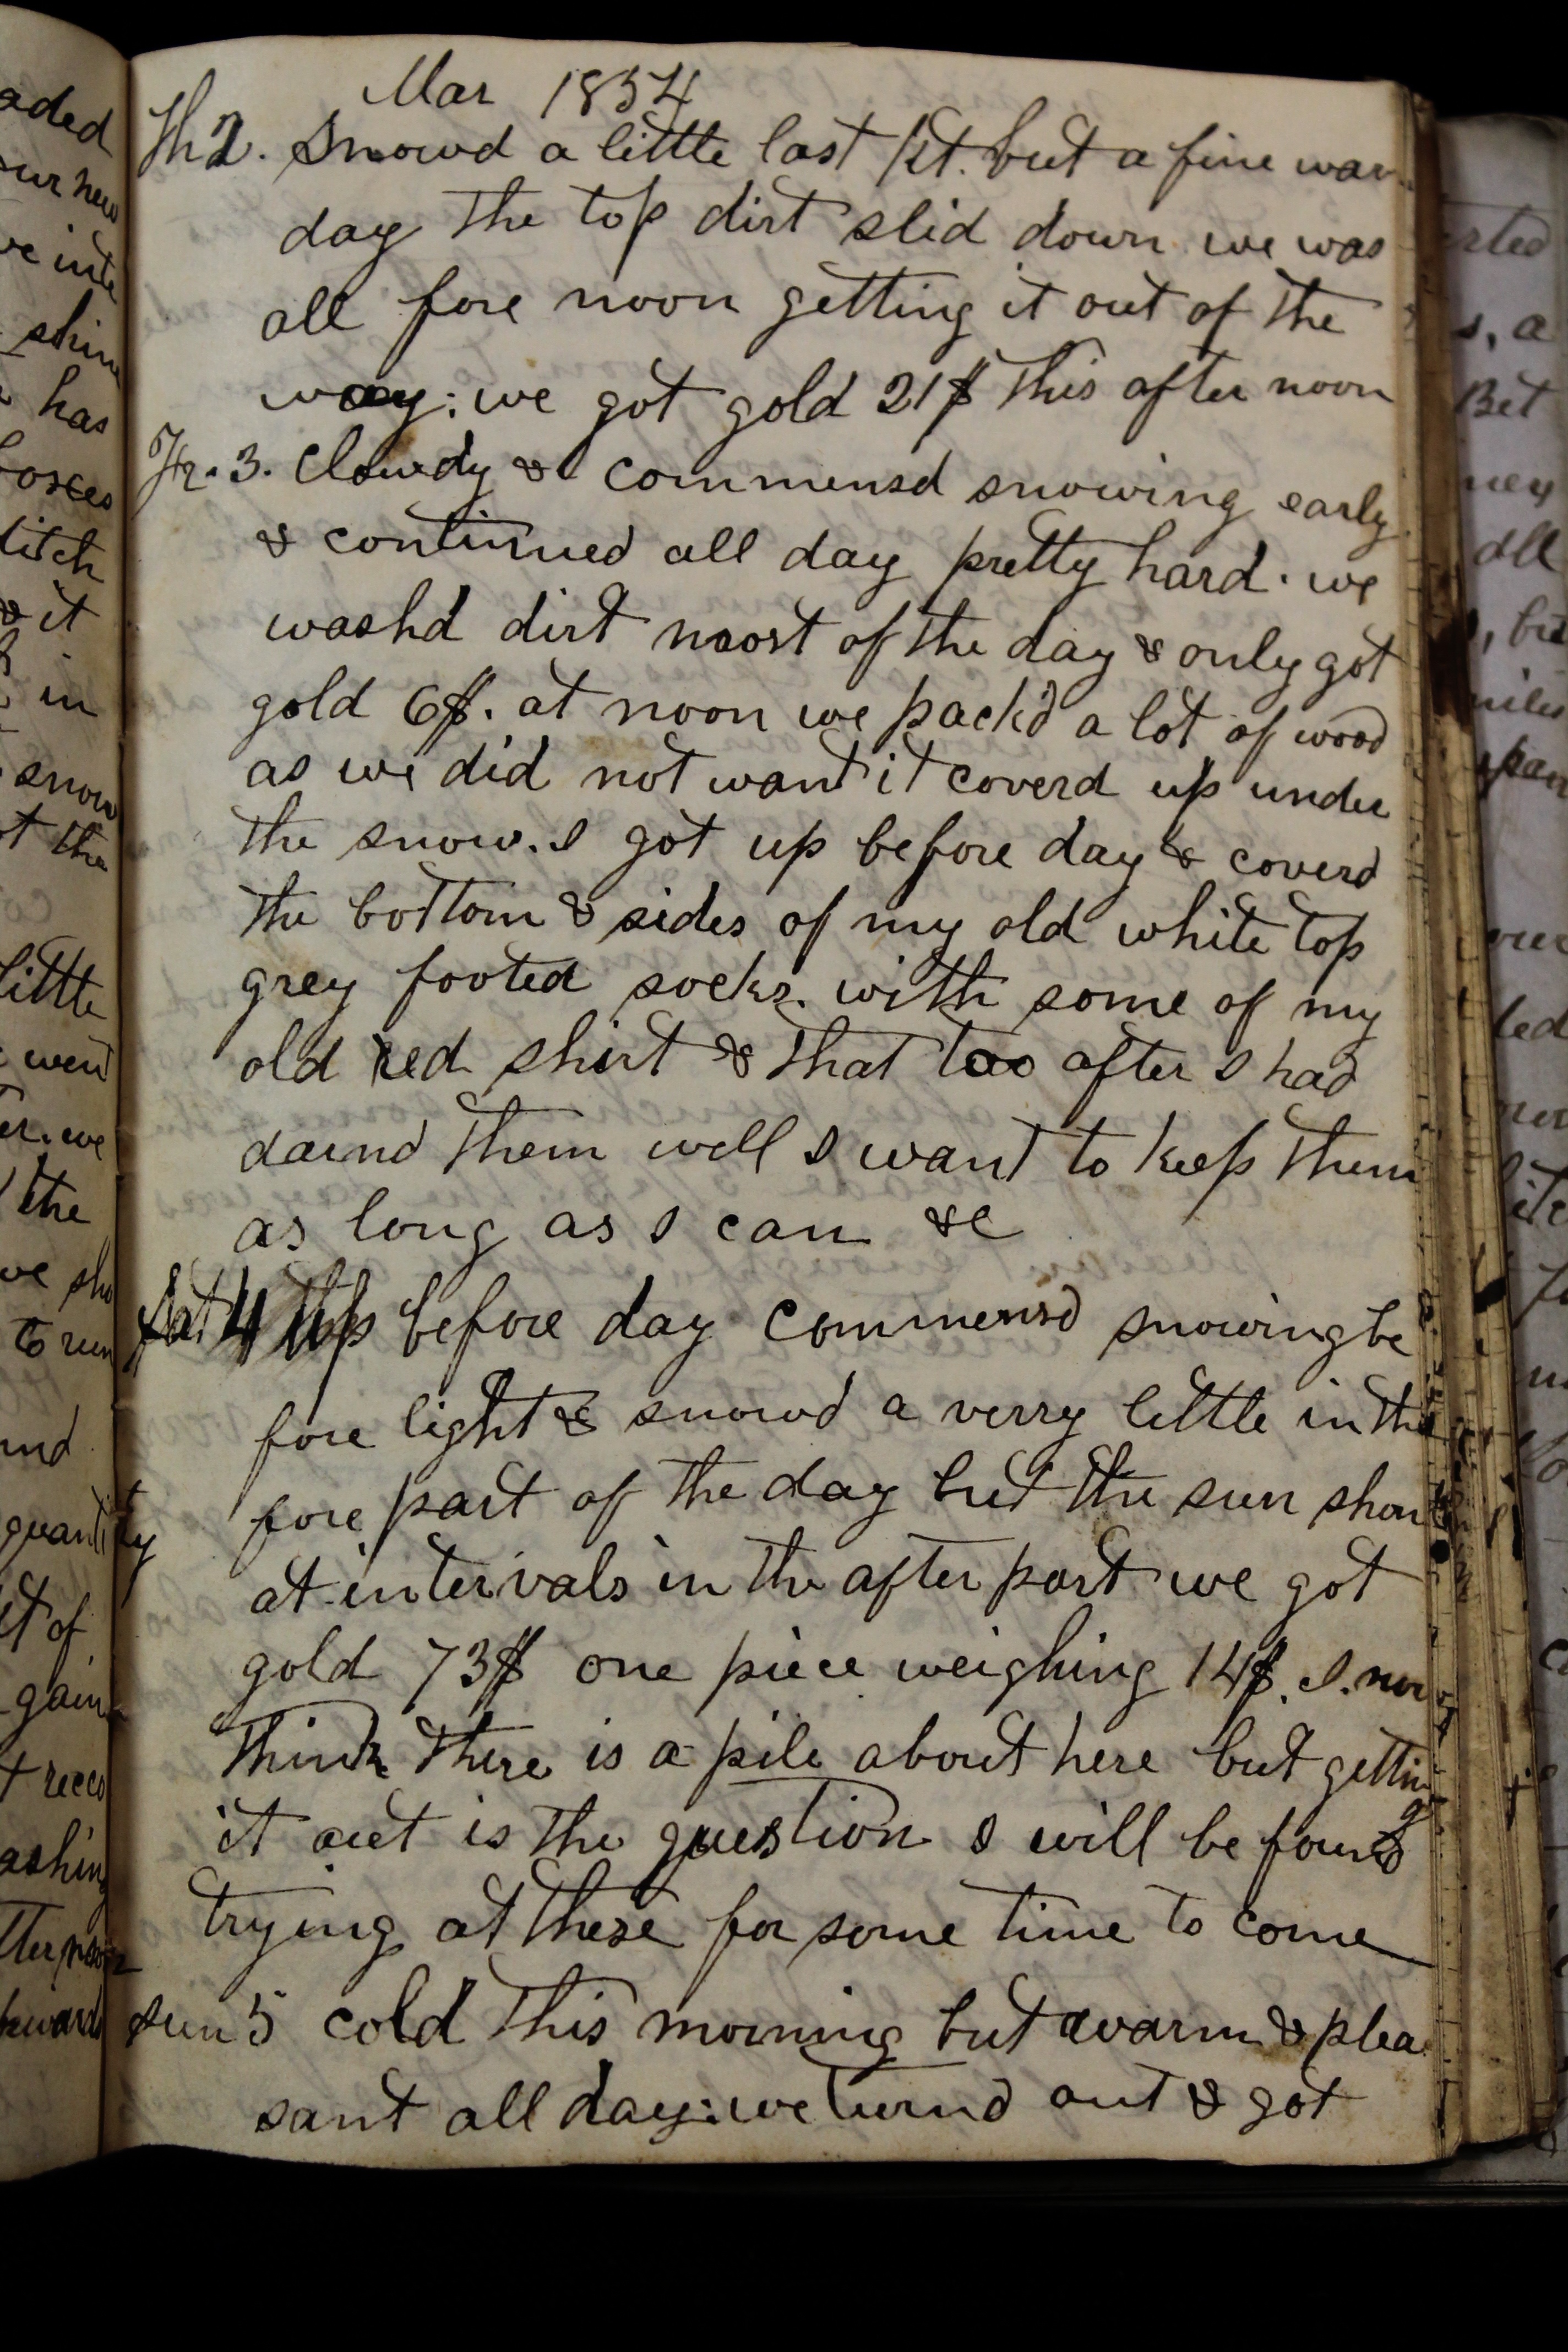 Mar 1854
Th 2. Snowd a little last Nt. but a fine war
day the top dirt slid down we was
all fore noon getting it out of the
way: we got gold 21$ this after noon
Fr. 3. Clowdy & commensd snowing early
& continued all day pretty hard. we
washd dirt most of the day & only got
gold 6$. at noon we pack'd a lot of wood
as we did not want it coverd up under
the snow. I got up before day & coverd
the bottom & sides of my old white top
grey footed socks. with some of my
old red shirt & that too after I had
darnd them well I want to keep them
as long as I can &c
Sat 4 Up before day commensd snowing be
fore light & snowd a verry little in the
fore part of the day but the sun shon
at intervals in the after part we got
gold 73$ one piece weighing 14$. I. now
think there is a pile about here but getting
it out is the question I will be found
trying at these for some time to come
Sun 5 cold this morning but warm & plea
sant all day: we turnd out & got
aded
our new
ve inte
shin
has
boxes
ditch
& it
in
snow
ot the
little
went
er. we
the
we sho
to run
and
quantity
it of
gain
t recco
ashing
tter noon
kwards
rted
s, a
Bet
ney
all
, bu
miles
pan
our
led